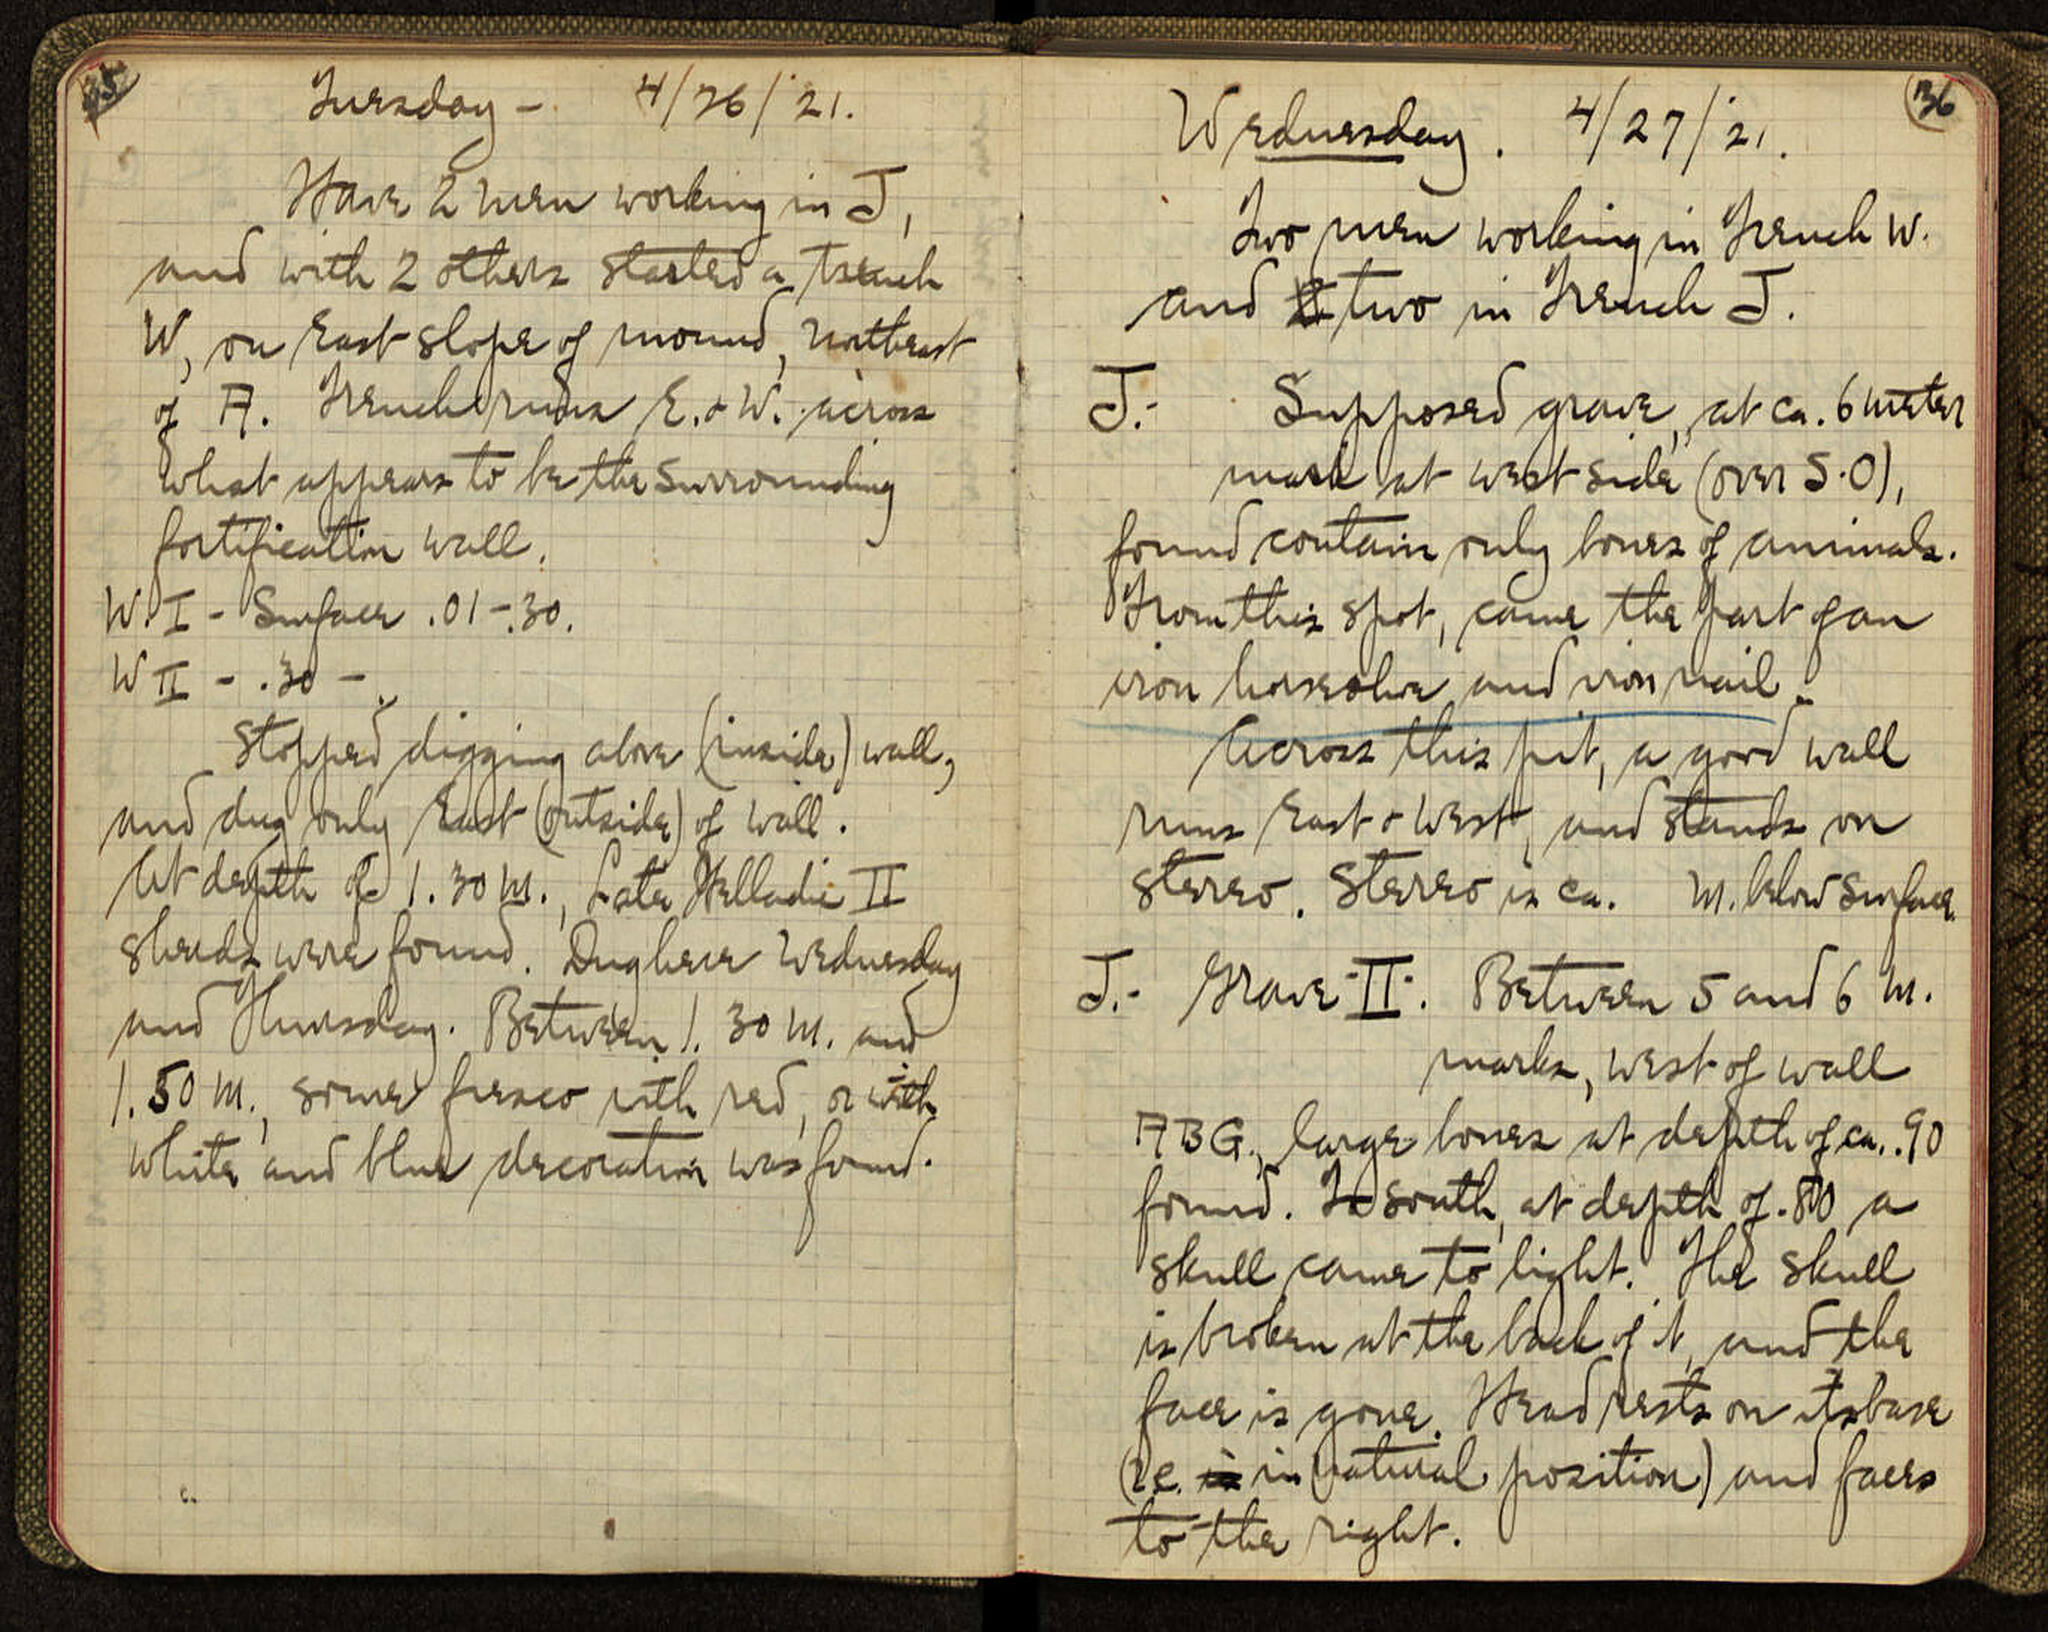 35
Tuesday - 4/26/'21.
Have 2 men working in J,
and with 2 others started a trench
W, on East slope of mound, Northeast
of A. Trench runs E. & W. across
what appears to be the surrounding
fortification wall.
W. I - Surface .01-.30.
W II - .30 -.
Stopped digging above (inside) wall,
and dug only East (outside) of wall.
At depth of 1.30 m., Late Helladic II
sherds were found. Dug here Wednesday
and Thursday. Between 1.30 m. and
1.50 m., some fresco with red, or with
white and blue decoration was found.
36
Wednesday. 4/27/'21.
Two men working in Trench W.
and two in Trench J.
J.- Supposed grave, at ca. 6 meter
mark at west side (over S.O),
found contain only bones of animals.
From this spot, came the part of an
iron horseshoe and iron nail.
Across this pit, a good wall
runs East & West, and stands on
stereo. Stereo is ca. m. below surface.
J.- Grave II. Between 5 and 6 m.
marks, west of wall
ABG., large bones at depth of ca. .90
found. To south, at depth of .80 a
skull came to light. The skull
is broken at the back of it, and the
face is gone. Head rests on its base
(i.e. in natural position) and faces
to the right.